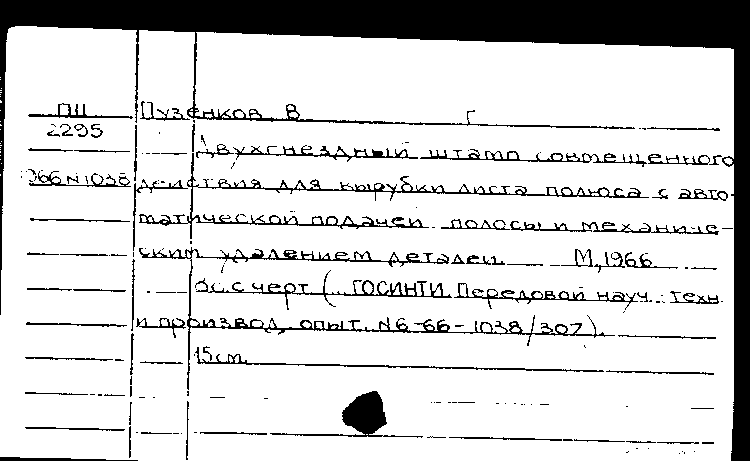 ПШ Пузенков, В. Г
2295
Двухгнездный штамп совмещенного
966 N 1038 действия для вырубки листа полюса с авто-
матической подачей полосы и механиче-
ским удалением деталей. М, 1966
8с. с черт. (ГОСИНТИ. Передовой науч.-техн.
и производ. опыт. N6-66-1038/307).
15см.